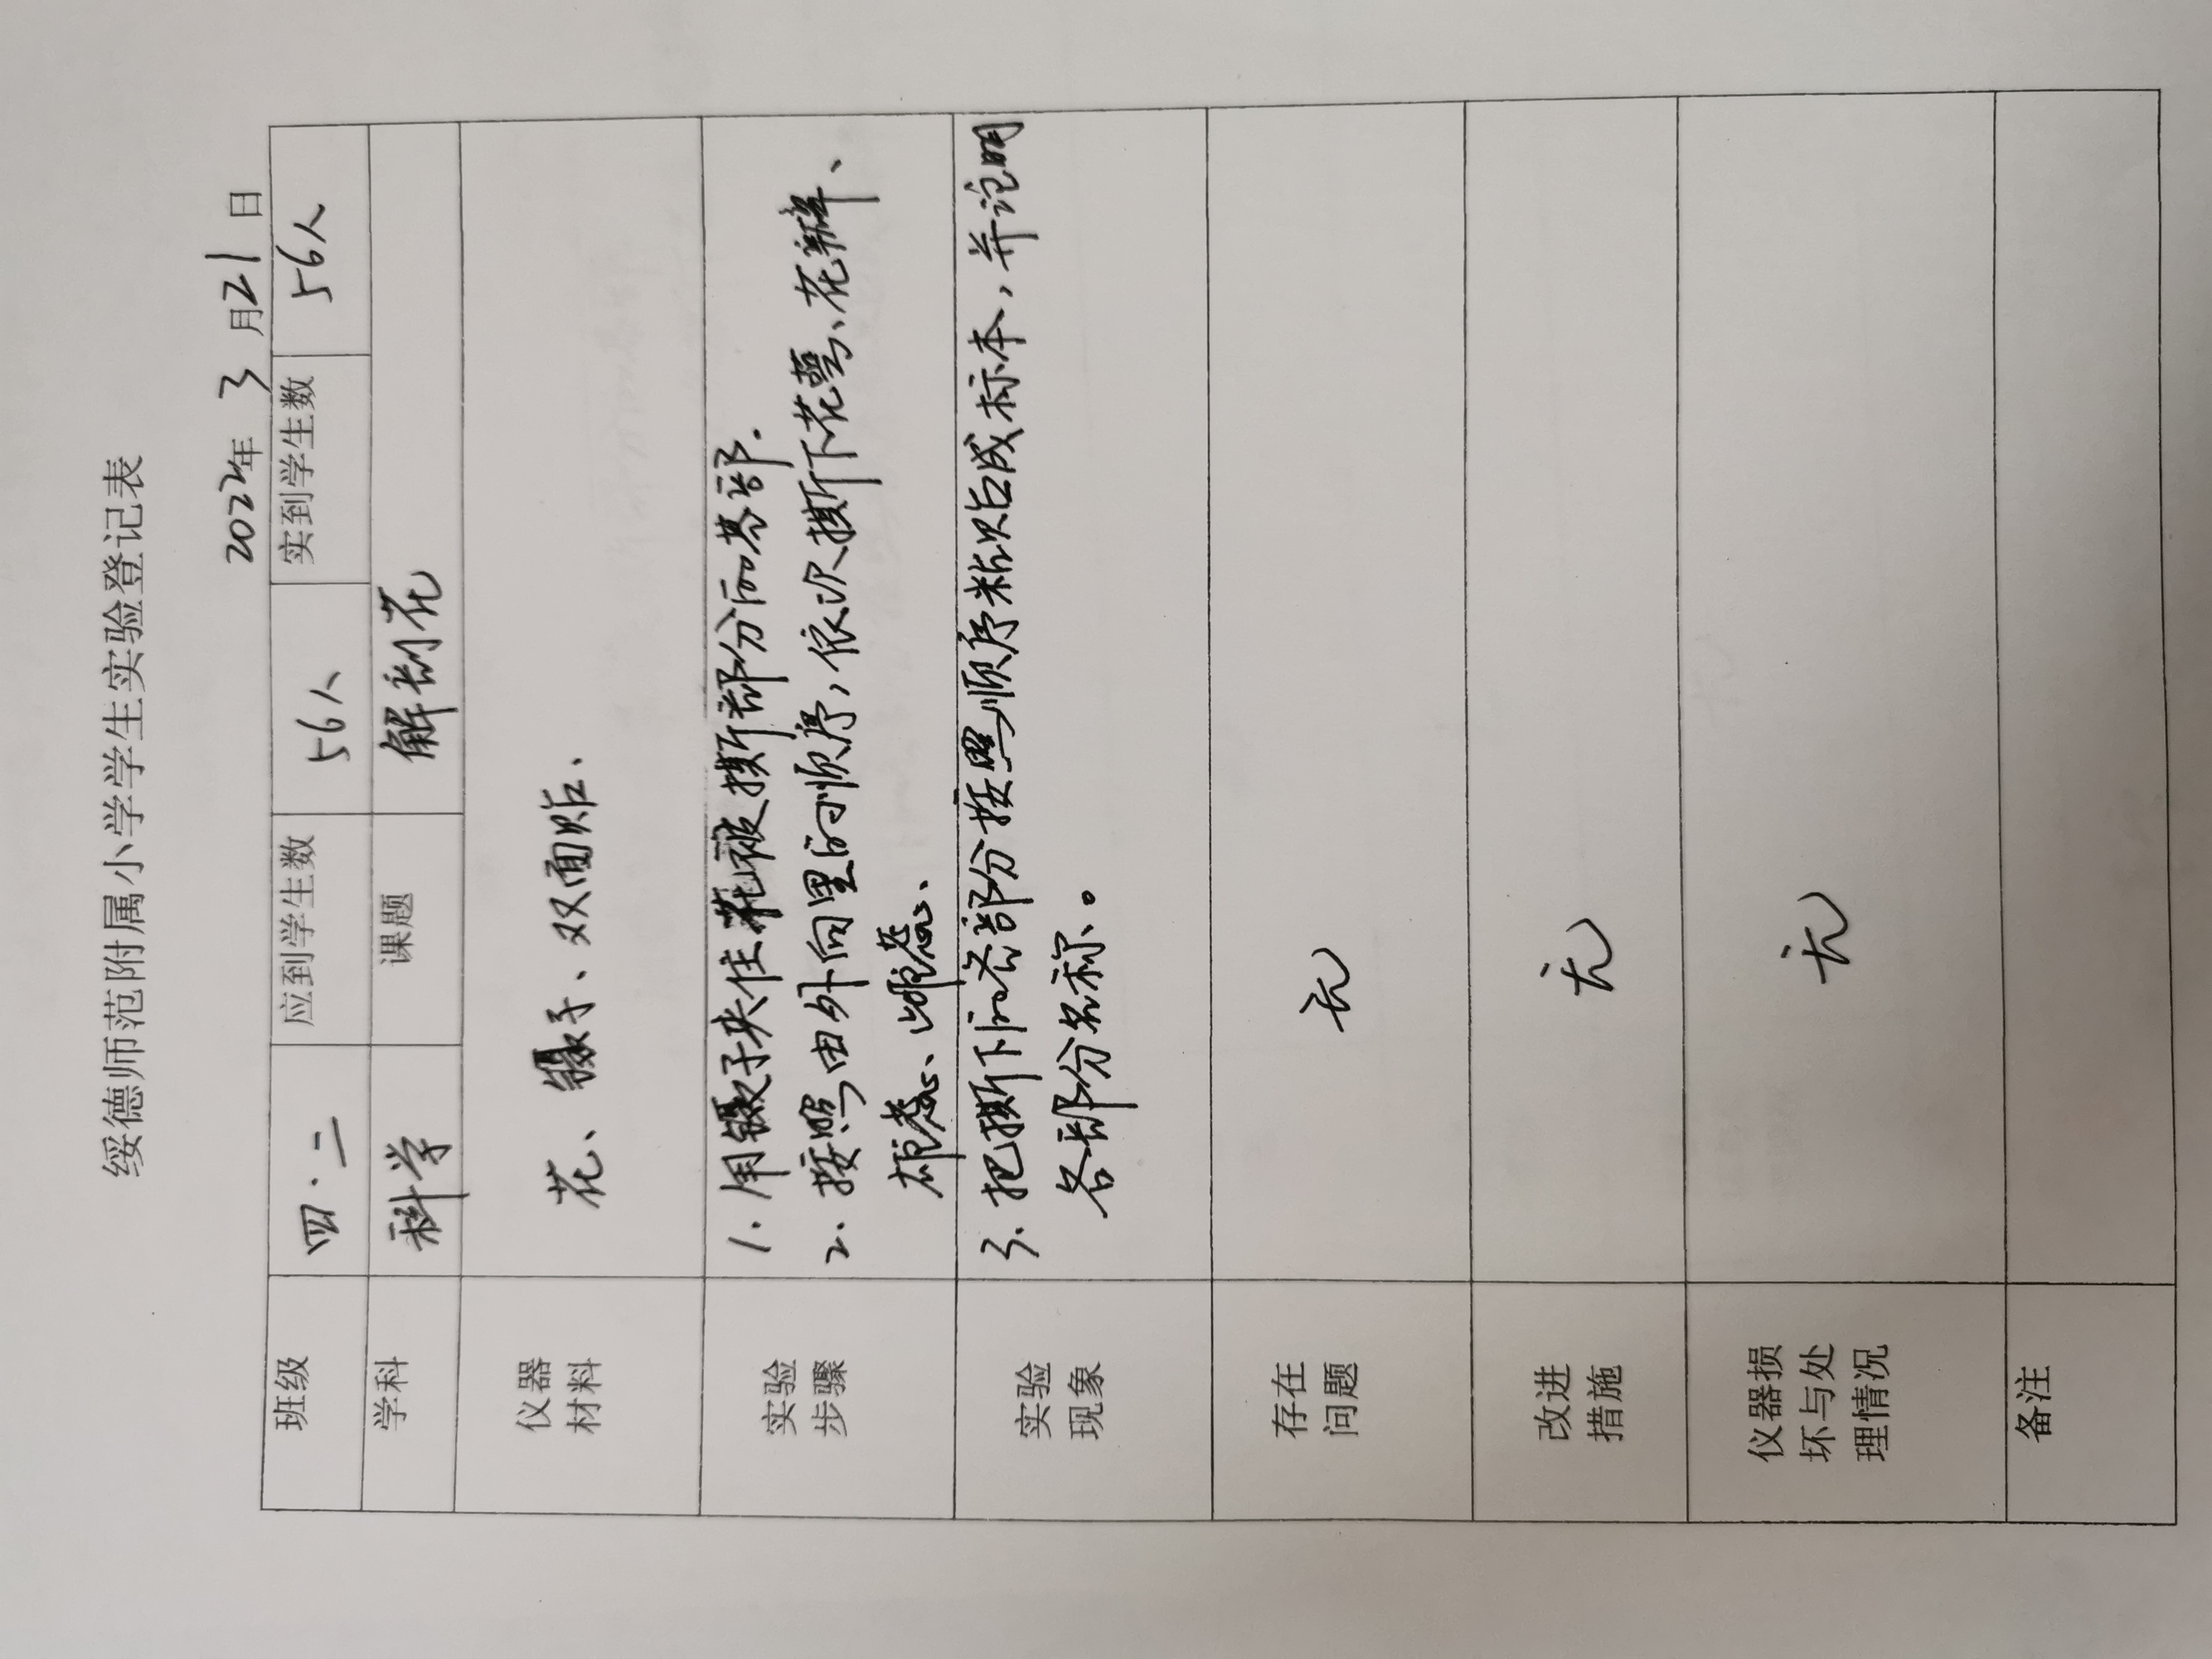 绥德师范附属小学学生实验登记表
2022年 3 月21日
班级 四·二 应到学生数 56人 实到学生数 56人
学科 科学 课题 解剖花
仪器
材料
花、镊子、双面贴、
实验
步骤
1. 用镊子夹住花被撕部分的基部.
2. 按照由外向里的顺序,依次撕下花萼、花瓣、
雄蕊、雌蕊、
实验
现象
3. 把撕下的各部分按照顺序粘贴成标本,并说明
各部分名称。
存在
问题
无
改进
措施
无
仪器损
坏与处
理情况
无
备注